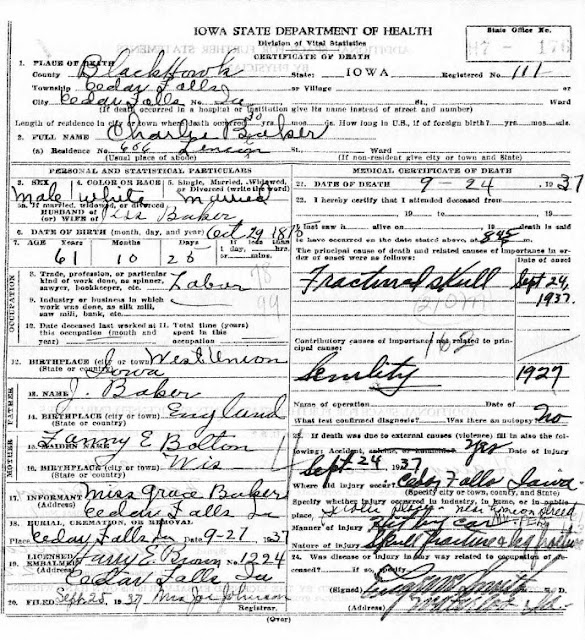 IOWA STATE DEPARTMENT OF HEALTH
Division of Vital Statistics
CERTIFICATE OF DEATH
State Office No.
1. PLACE OF DEATH
County Black Hawk State: IOWA Registered No. 111
Township Cedar Falls or Village
City Cedar Falls No. Ia Ward
(If death occurred in a hospital or institution give its name instead of street and number)
Length of residence in city or town where death occurred 30 yrs. mos. ds. How long in U.S., if of foreign birth? yrs. mos. ds.
2. FULL NAME Charlie Baker
(a) Residence 606 St., Ward
(Usual place of abode) (If non-resident give city or town and State)
PERSONAL AND STATISTICAL PARTICULARS
3. SEX 4. COLOR OR RACE 5. Single, Married, Widowed, or Divorced (write the word)
Male White Married
5a. If married, widowed, or divorced
HUSBAND of
(or) WIFE of Baker
6. DATE OF BIRTH (month, day, and year) Oct 29
7. AGE Years Months Days If less than
61 10 25
8. Trade, profession, or particular kind of work done, as spinner, sawyer, bookkeeper, etc. Labor
9. Industry or business in which work was done, as silk mill, saw mill, bank, etc.
10. Date deceased last worked at this occupation (month and year)
11. Total time (years) spent in this occupation
12. BIRTHPLACE (city or town) West Union
(State or country) Iowa
13. NAME J. Baker
14. BIRTHPLACE (city or town) England
(State or country)
15. MAIDEN NAME Fanny E Bolton
16. BIRTHPLACE (city or town) Wis
(State or country)
17. INFORMANT Miss Grace Baker
Cedar Falls Ia
18. BURIAL, CREMATION, OR REMOVAL
Place Cedar Falls Ia 9-27 1937
19. LICENSED EMBALMER Harry E Brown 1224
Cedar Falls Ia
20. FILED Sept 25, 1937 Mrs Johnson
Registrar.
(Over)
MEDICAL CERTIFICATE OF DEATH
21. DATE OF DEATH 9-24 1937
22. I hereby certify that I attended deceased from
19 to 19
I last saw alive on 19 death is said
to have occurred on the date stated above, at 8:45
The principal cause of death and related causes of importance in order of onset were as follows:
Date of onset
Fractured skull Sept 24, 1937
Contributory causes of importance not related to principal cause: 162
Senility 1927
Name of operation Date of
What test confirmed diagnosis? Was there an autopsy? No
23. If death was due to external causes (violence) fill in also the following: Accident, suicide, or homicide? Yes
Sept 24 1937
Where did injury occur? Cedar Falls Iowa
(Specify city or town, county, and State)
Specify whether injury occurred in industry, in home, or in public place.
Manner of injury Hit by car
Nature of injury Skull fracture & leg
24. Was disease or injury in any way related to occupation of deceased? If so, specify
(Signed)